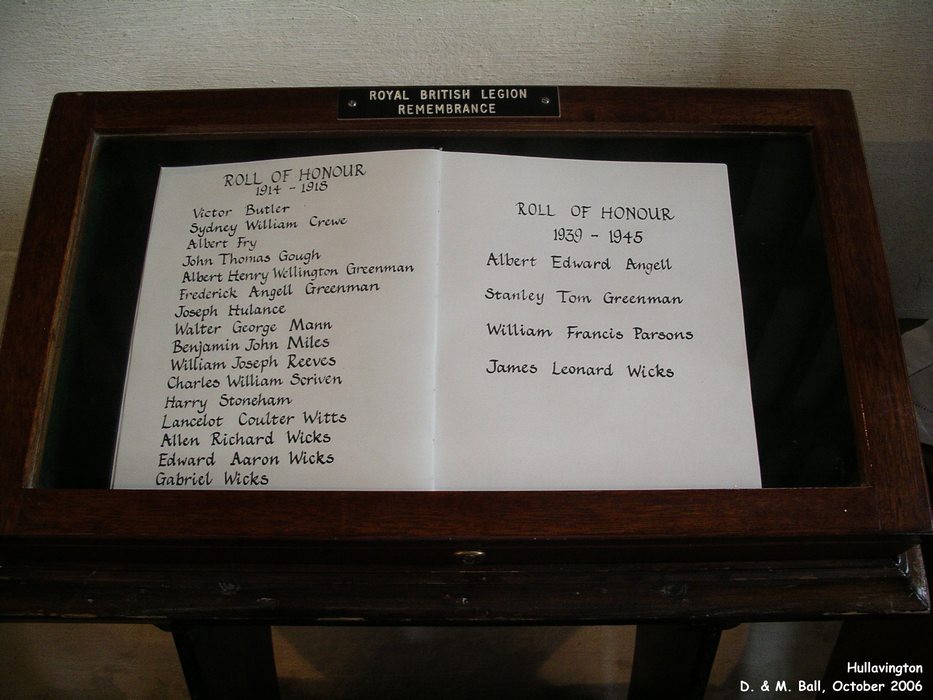 ROYAL BRITISH LEGION
REMEMBRANCE
ROLL OF HONOUR
1914 - 1918
Victor Butler
Sydney William Crewe
Albert Fry
John Thomas Gough
Albert Henry Wellington Greenman
Frederick Angell Greenman
Joseph Hulance
Walter George Mann
Benjamin John Miles
William Joseph Reeves
Charles William Scriven
Harry Stoneham
Lancelot Coulter Witts
Allen Richard Wicks
Edward Aaron Wicks
Gabriel Wicks
ROLL OF HONOUR
1939 - 1945
Albert Edward Angell
Stanley Tom Greenman
William Francis Parsons
James Leonard Wicks
Hullavington
D. & M. Ball, October 2006